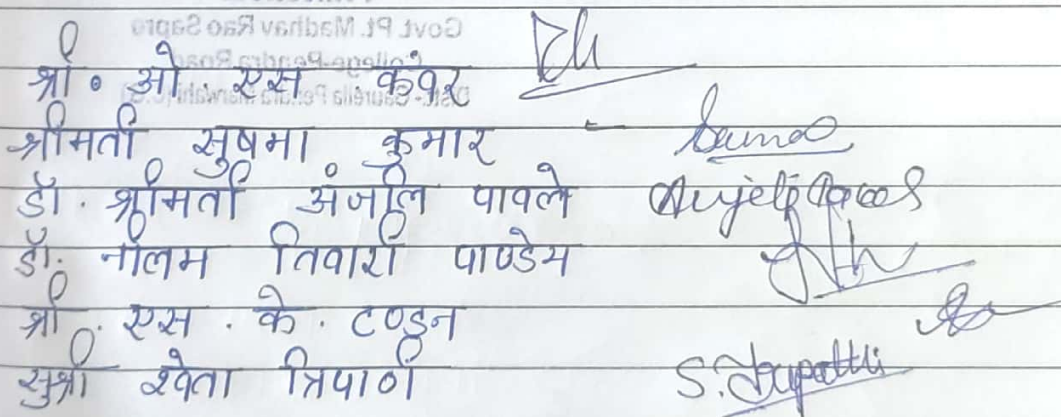 Govt Pt. Madhav Rao Sapre
College-Pendra Road
Distt- Gaurella Pendra Marwahi (C.G.)
श्री. ओ. एस कंवर
श्रीमती सुषमा कुमार -
डॉ. श्रीमती अंजलि पावले Anjeli
डॉ. नीलम तिवारी पाण्डेय
श्री. एस. के. टण्डन
सुश्री श्वेता त्रिपाठी S. Tripathi